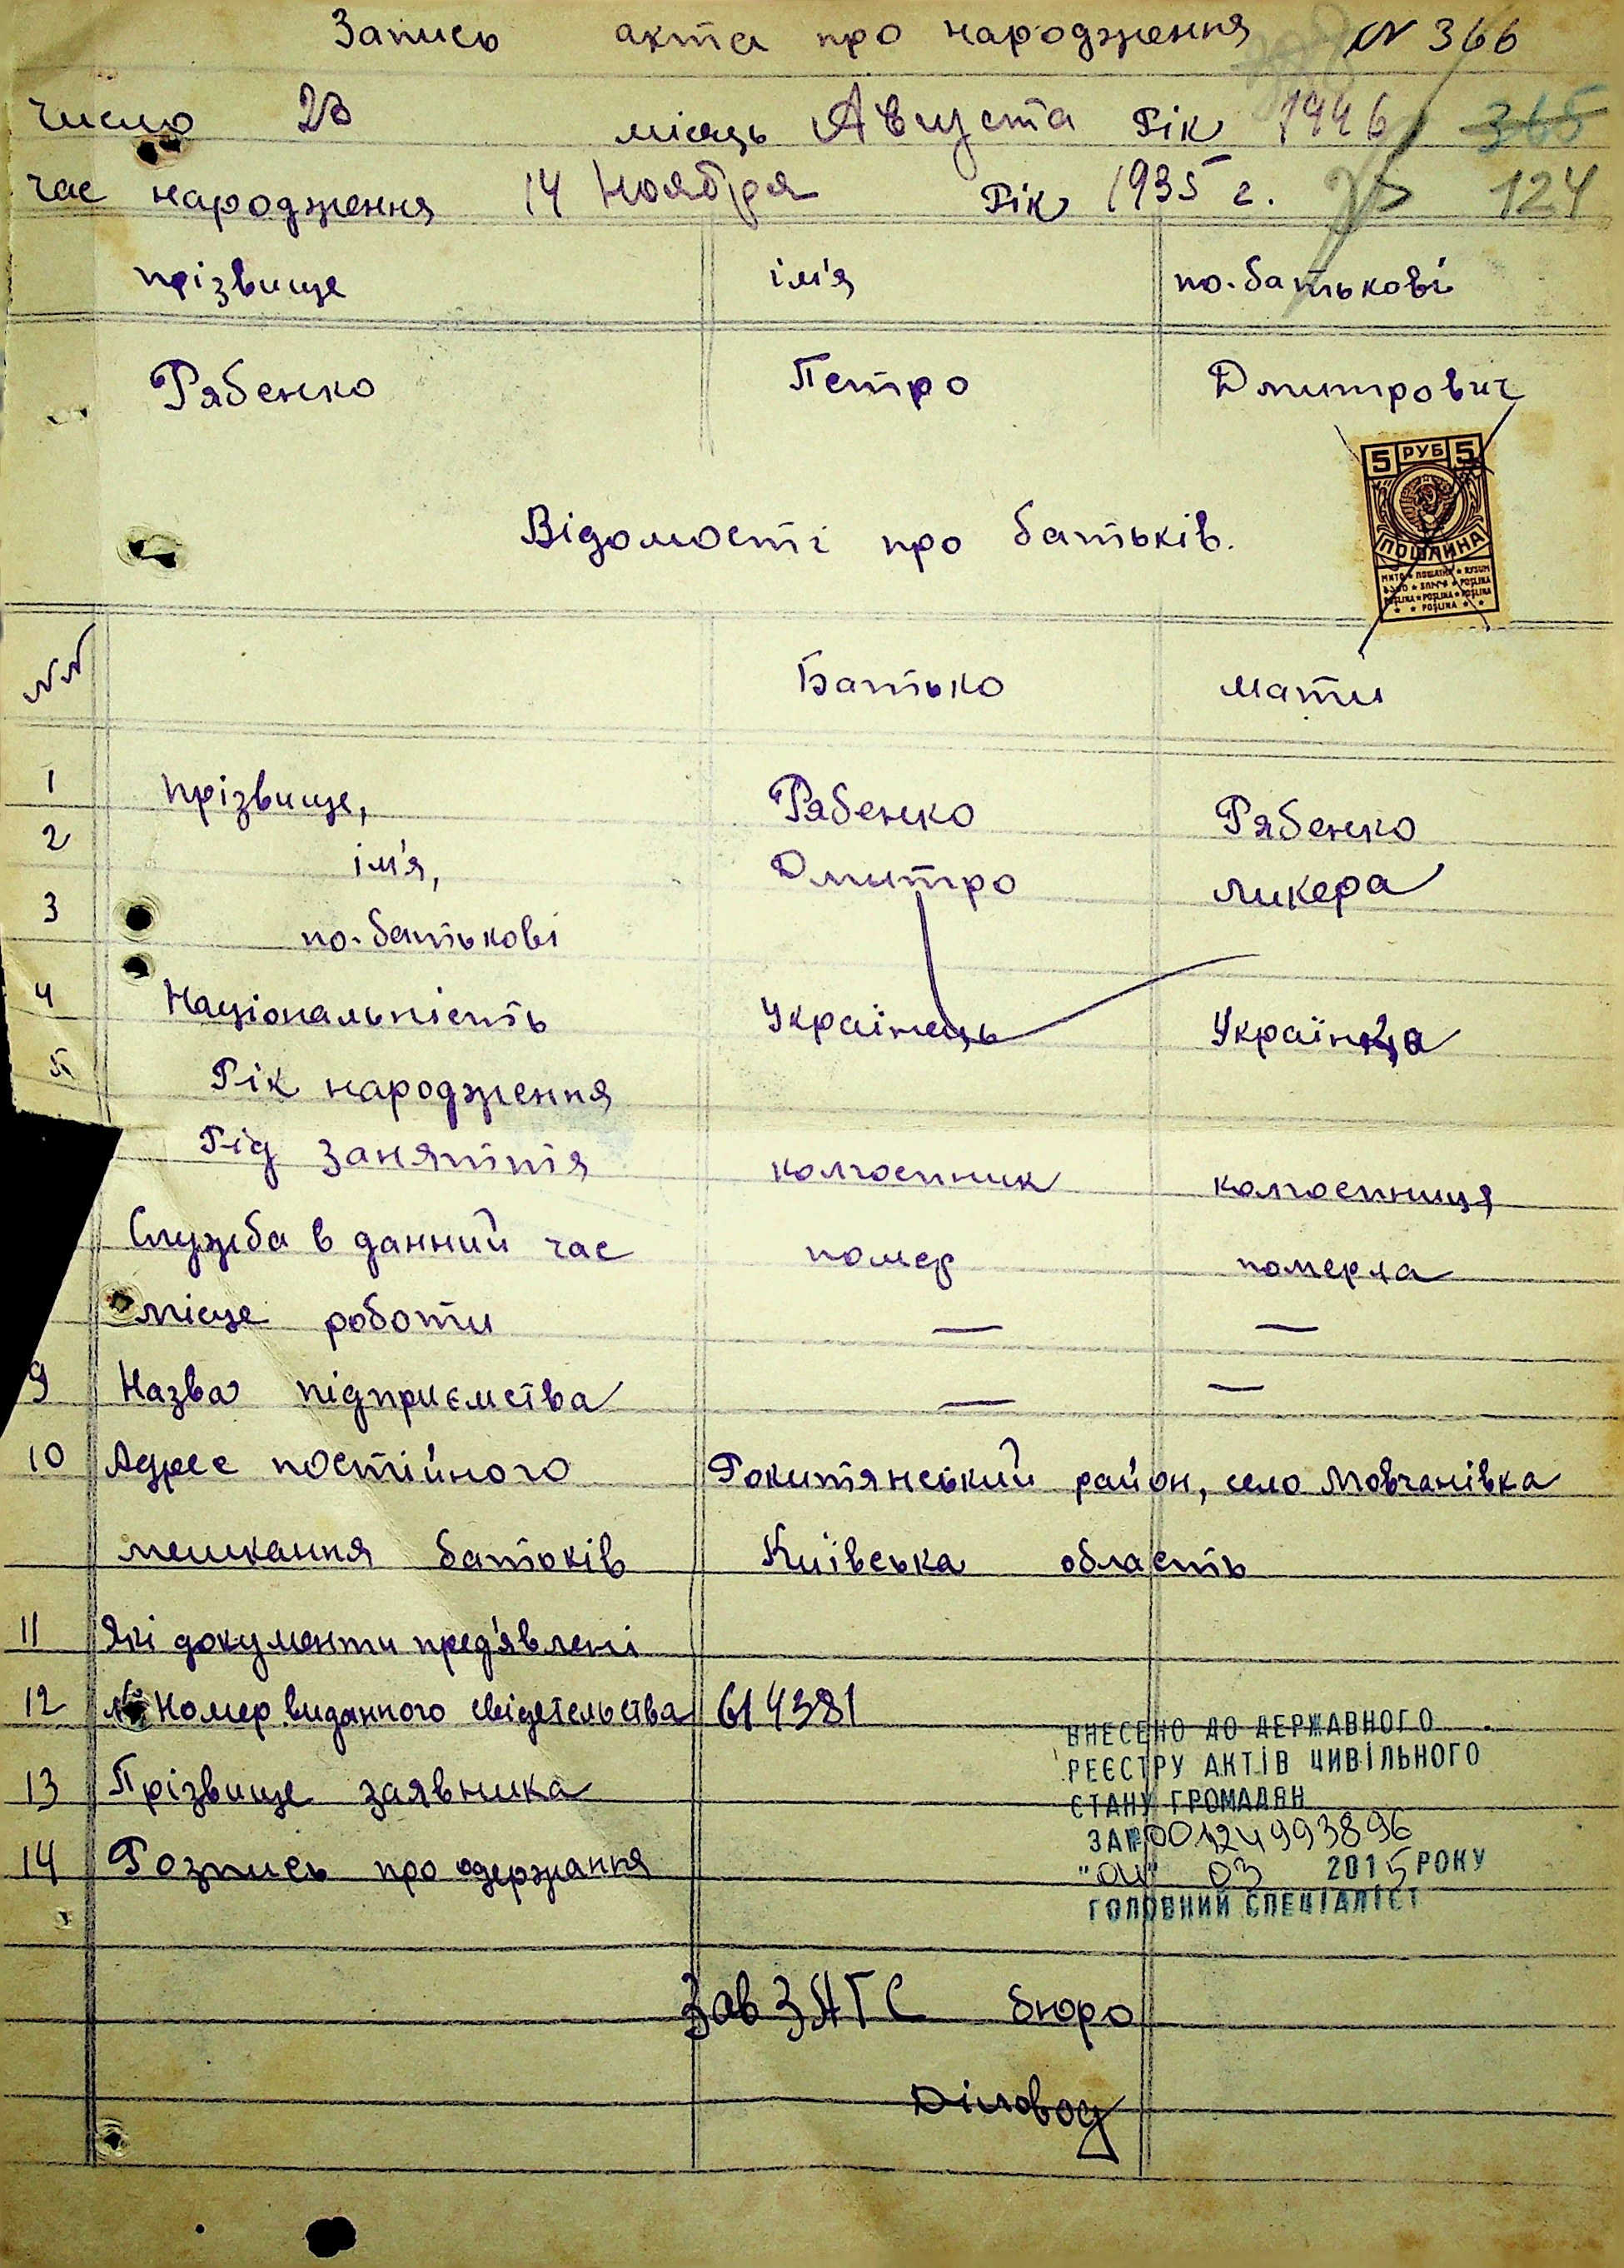 Запись акта про народження № 366
число 23 місяць Августа Рік 1946 365
час народження 14 Ноября Рік 1935 г. 124
прізвище ім'я по-батькові
Рябенко Петро Дмитрович
5 РУБ 5
ПОШЛИНА
Відомості про батьків.
№№ Батько мати
1 прізвище, Рябенко Рябенко
2 ім'я, Дмитро Ликера
3 по-батькові
4 Національність Українець Українка
5 Рік народження
Рід заняття колгоспник колгоспниця
Служба в данний час помер померла
місце роботи — —
9 Назва підприємства — —
10 Адрес постійного Рокитянський район, село Мовчанівка
мешкання батьків Київська область
11 Які документи пред'явлені
12 Номер виданного свідетельства 614381
13 Прізвище заявника
14 Розпись про одержання
ВНЕСЕНО ДО ДЕРЖАВНОГО
РЕЄСТРУ АКТІВ ЦИВІЛЬНОГО
СТАНУ ГРОМАДЯН
ЗА № 00124993896
"04" 03 2015 РОКУ
ГОЛОВНИЙ СПЕЦІАЛІСТ
Зав ЗАГС бюро
Діловод